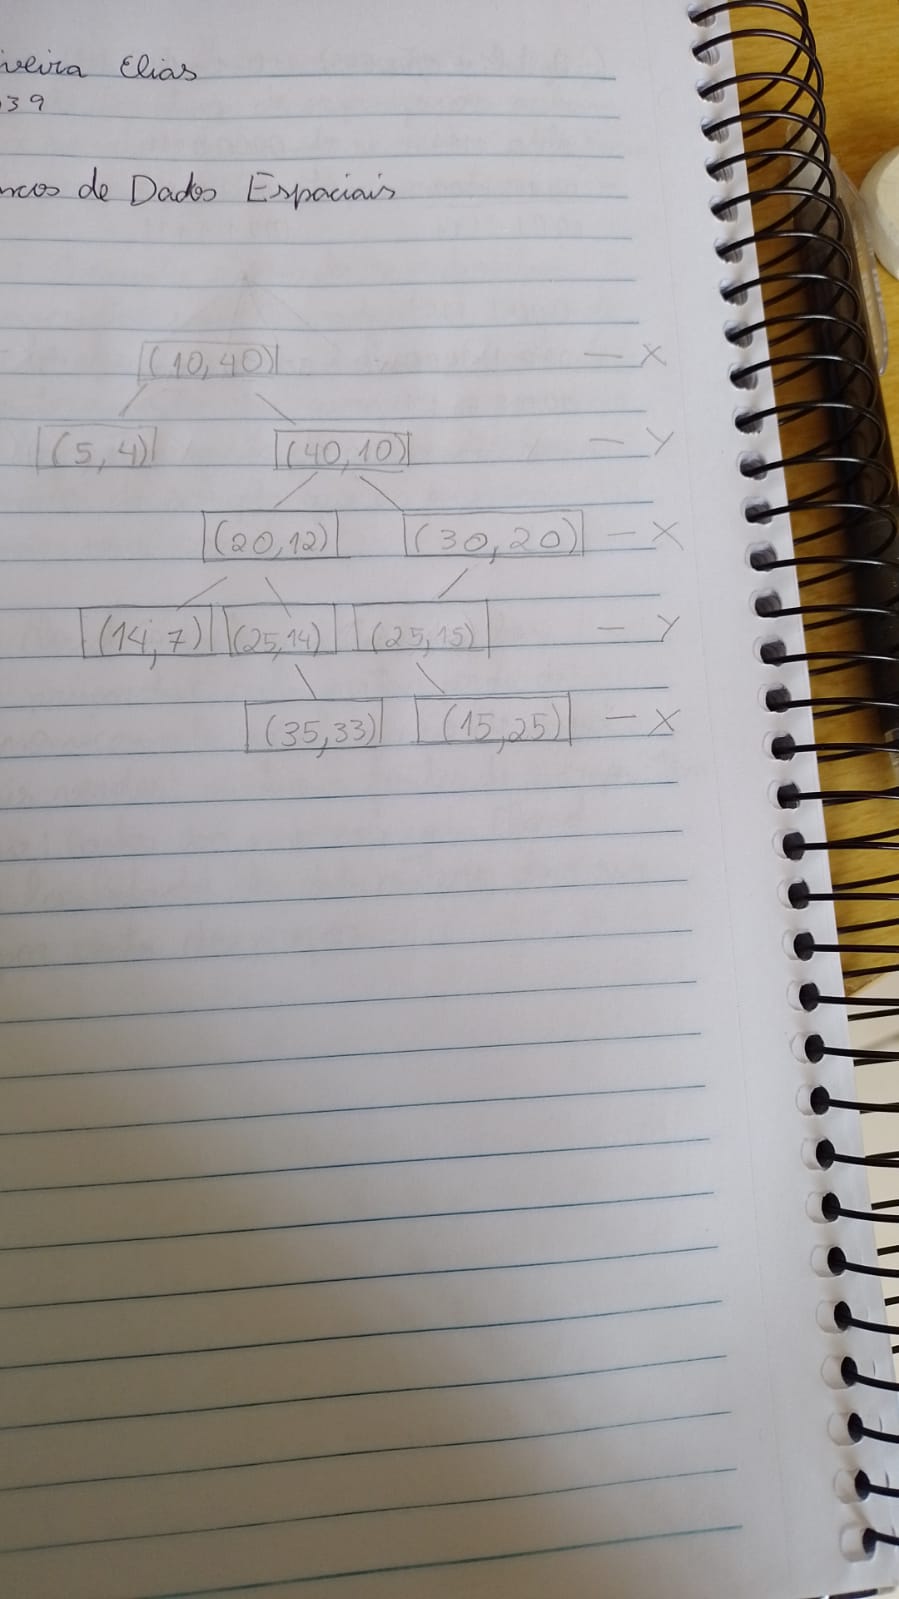 iveira Elias
039
ncos de Dados Espaciais
(10,40) — X
(5,4) (40,10) — Y
(20,12) (30,20) — X
(14,7) (25,14) (25,15) — Y
(35,33) (15,25) — X